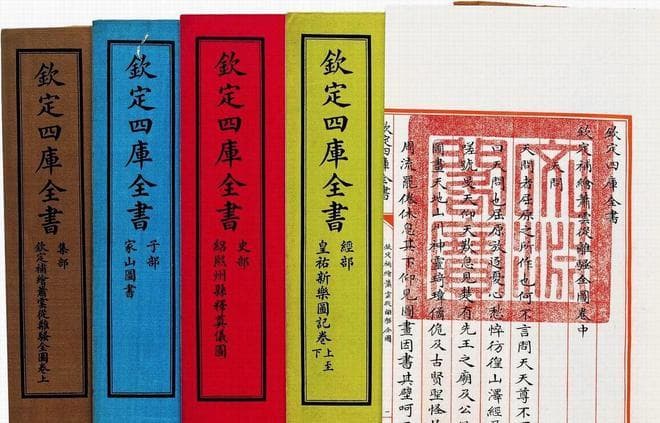 欽定四庫全書
欽定補繪蕭雲從離騷全圖卷中
天問
天問者屈原之所作也何不言問天天尊不
曰天問也屈原放逐憂心愁悴彷徨山澤經
嗟號旻天仰天歎息見楚有先王之廟及公
圖畫天地山川神靈琦瑋僪佹及古賢聖怪
周流罷倦休息其下仰見圖畫因書其壁呵
文淵閣寶
欽定四庫全書
欽定補繪蕭雲從離騷全圖
欽定四庫全書
經部
皇祐新樂圖記卷上至下
欽定四庫全書
史部
紹熙州縣釋奠儀圖
欽定四庫全書
子部
家山圖書
欽定四庫全書
集部
欽定補繪蕭雲從離騷全圖卷上